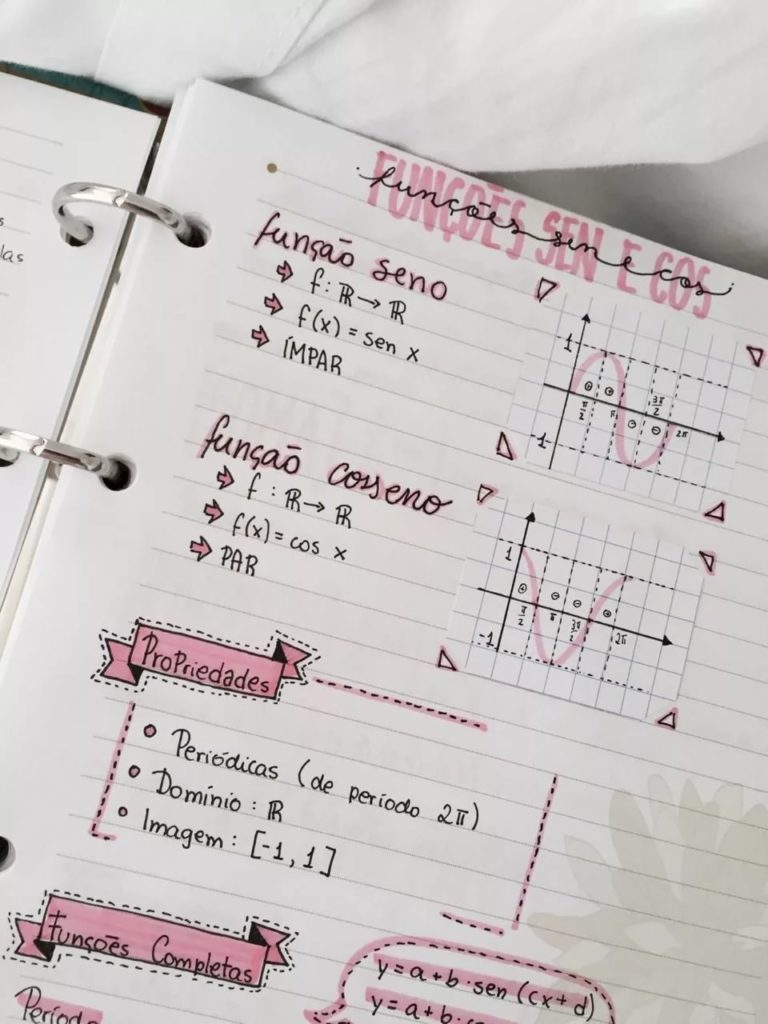 FUNÇÕES SEN E COS
funções sen e cos
função seno
⇨ f: ℝ → ℝ
⇨ f(x) = sen x
⇨ ÍMPAR
1
⊕ ⊕ 3π/2
π/2 π ⊖ ⊖ 2π
-1
função cosseno
⇨ f: ℝ → ℝ
⇨ f(x) = cos x
⇨ PAR
1
⊕ ⊖ ⊖ ⊕
π/2 π 3π/2 2π
-1
Propriedades
• Periódicas (de período 2π)
• Domínio: ℝ
• Imagem: [-1, 1]
Funções Completas
y = a + b · sen (cx + d)
y = a + b ·
Período